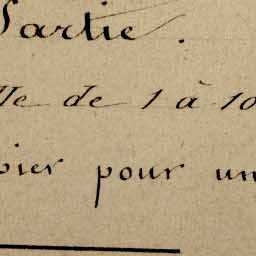 Partie.
lle de 1 à 10
pier pour un